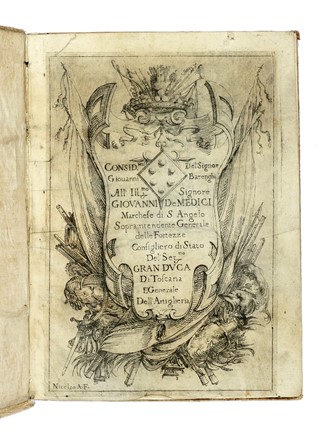 CONSID.ni Del Signor
Giovanni Barenghi
All' Ill.mo Signore
GIOVANNI DE MEDICI
Marchese di S. Angelo
Sopraintendente Generale
delle Fortezze
Consigliero di Stato
Del Ser.mo
GRAN DVCA
Di Toscana
E Generale
Dell' Artiglieria
Nicolao A.F.